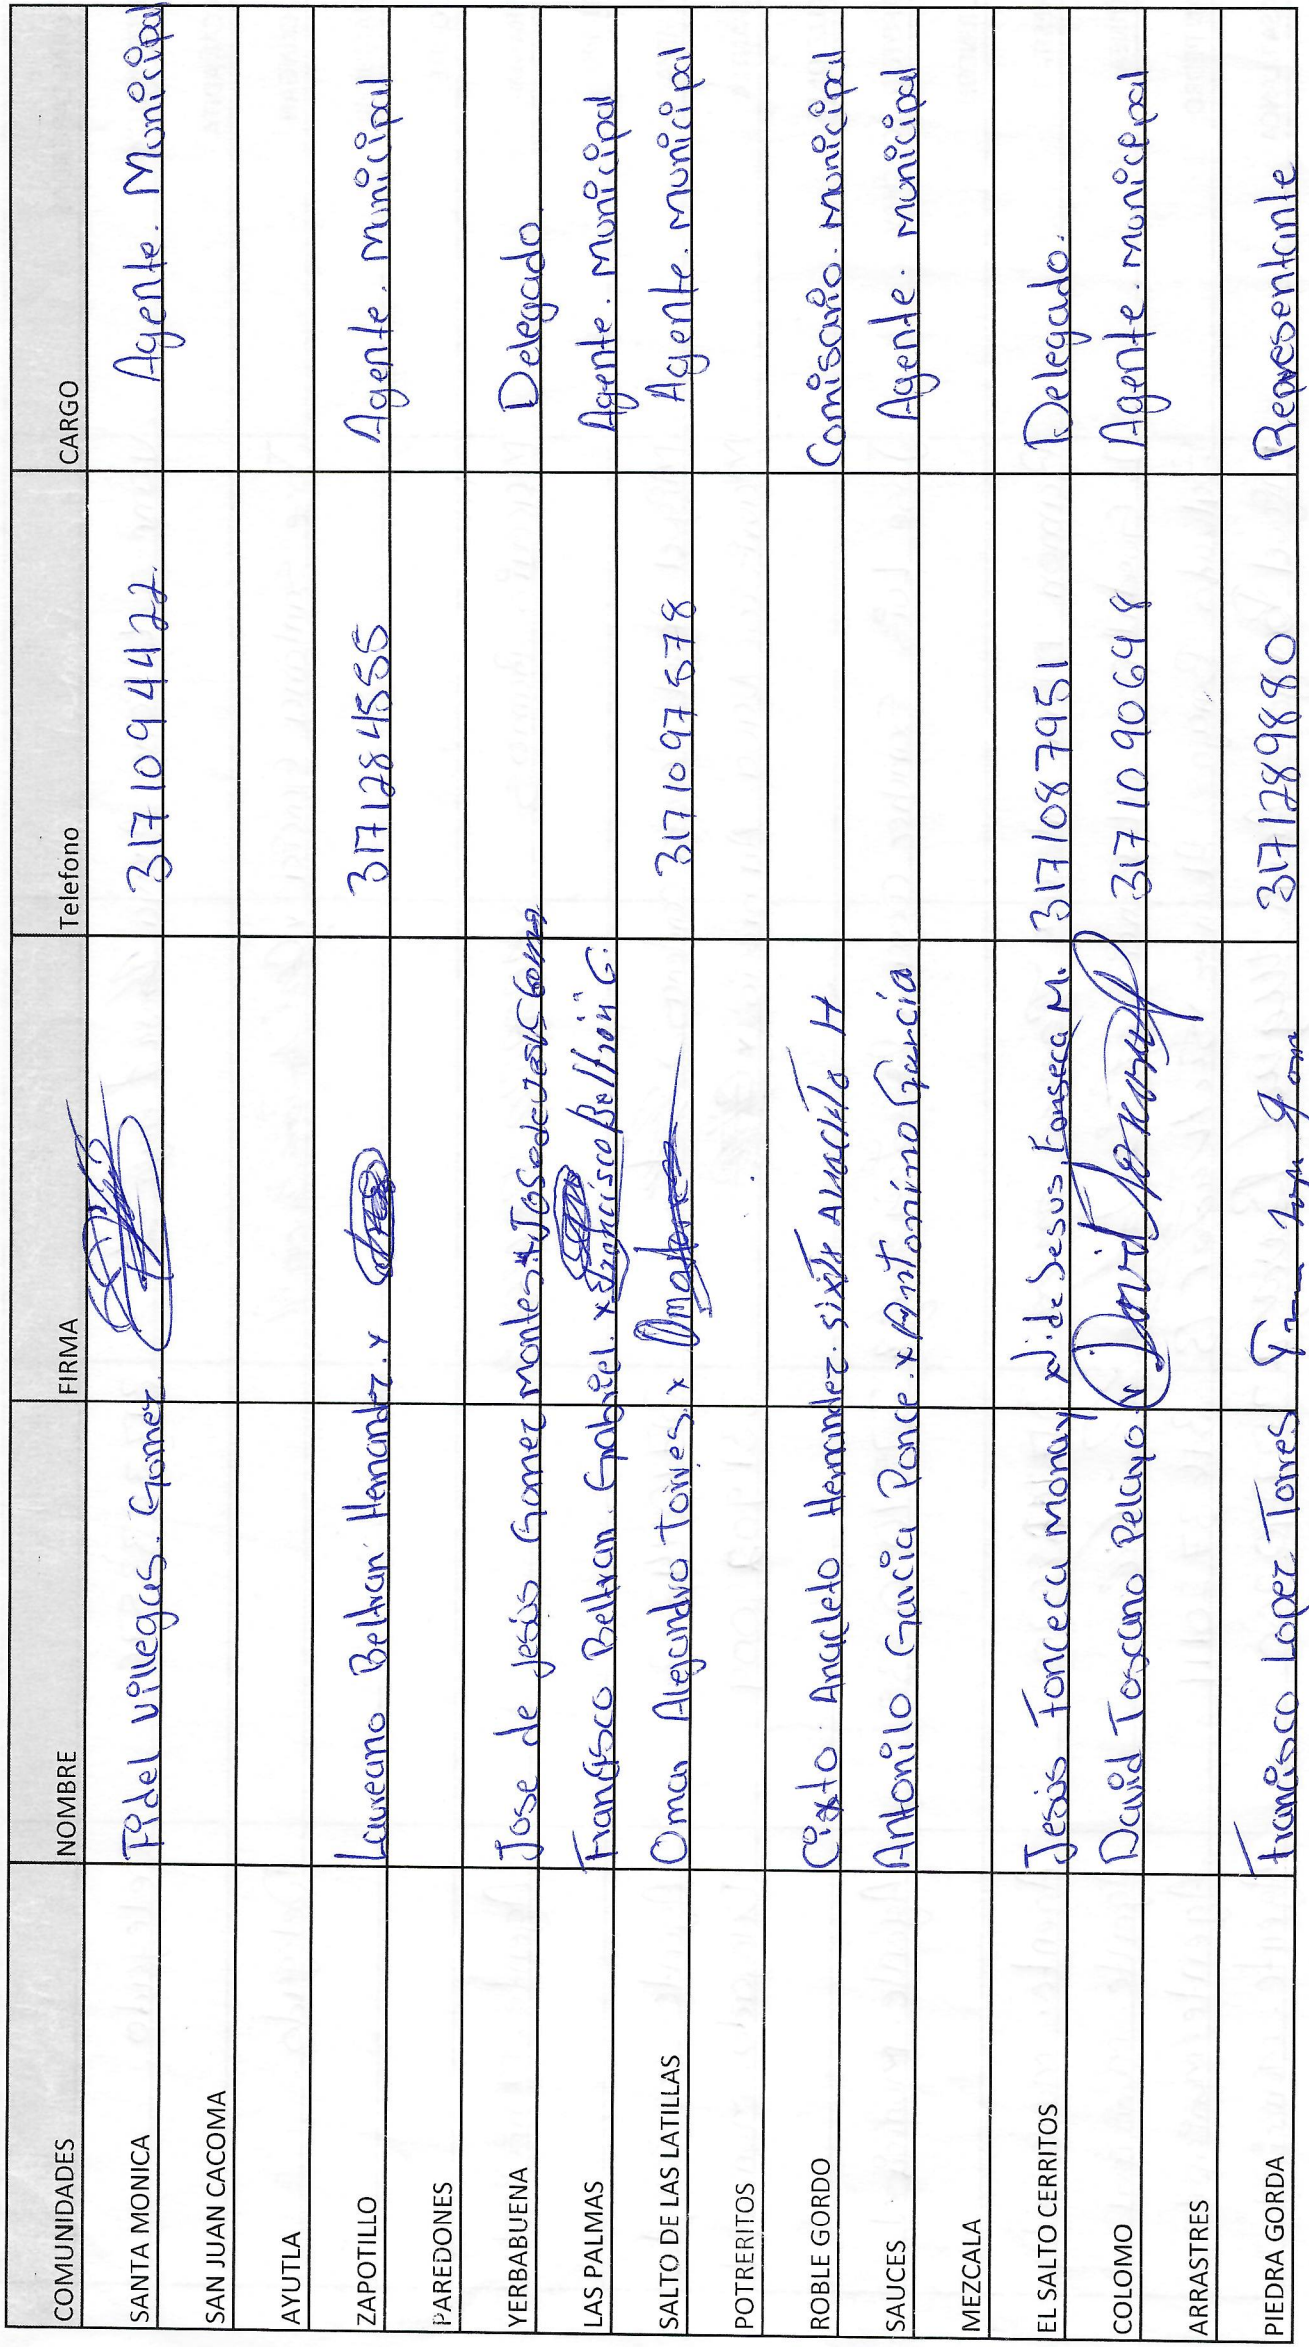 COMUNIDADES NOMBRE FIRMA Telefono CARGO
SANTA MONICA Fidel Villegas. Gomez. 3171094422. Agente. Municipal
SAN JUAN CACOMA
AYUTLA
ZAPOTILLO Laureano Beltran Hernandez. x 3171284555 Agente. municipal
PAREDONES
YERBABUENA Jose de Jesús Gomez Montes. Jose de Jesús Gomez Delegado.
LAS PALMAS Francisco Beltran. Gabriel. x Francisco Beltrán G. Agente. Municipal
SALTO DE LAS LATILLAS Omar Alejandro Torres. x 3171097578 Agente. Municipal
POTRERITOS
ROBLE GORDO Cixto Anacleto Hernandez. sixto Anacleto H Comisario. Municipal
SAUCES Antonilo Garcia Ponce. x Antonino García Agente. municipal
MEZCALA
EL SALTO CERRITOS Jesús Fonceca Monay x J. de Jesus, Fonseca M. 3171087951 Delegado.
COLOMO David Toscano Pelayo. x David Toscano P 3171090648 Agente. municipal
ARRASTRES
PIEDRA GORDA Francisco Lopez Torres 3171289880 Representante